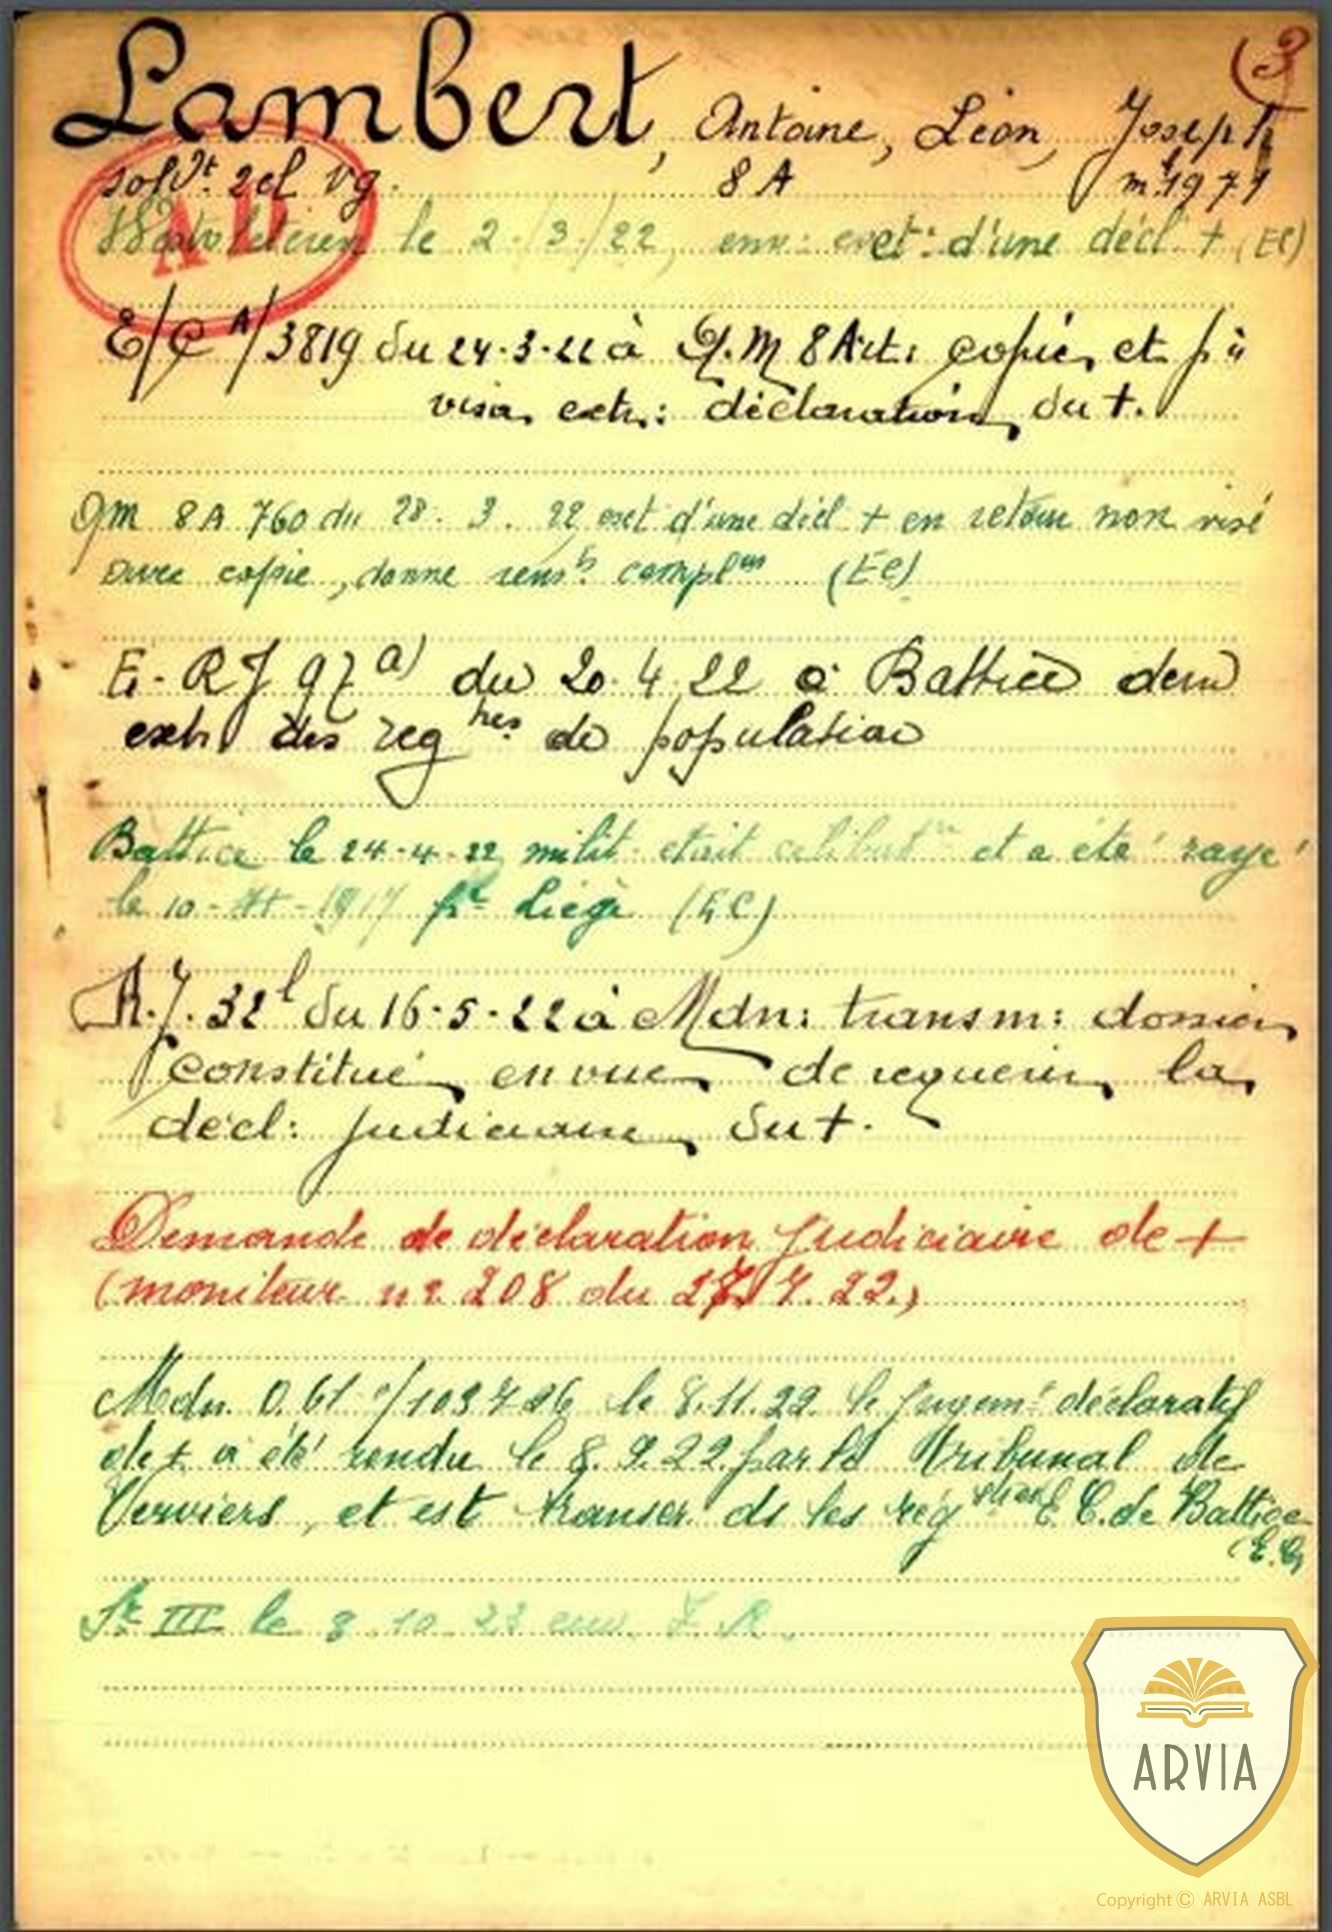 (3
Lambert, Antoine, Léon, Joseph
soldt 2 cl vg. 8 A ml 1971
AD
le 2/3/22, env: ext: d'une décl + (EC)
E/C A/3819 du 24.3.22 à Q.M 8 Art: copie, et pr
visa, extr: déclaration, du +.
QM 8A 760 du 28. 3. 22 ext d'une décl + en retour non visé
avec copie, donne rensts complres (EC)
E. RJ 97 a) du 20.4.22 à Battice dem
extr des reg tres de population
Battice le 24-4-22 milit. était célibatre et a été rayé
le 10- -1917 pr Liège (EC)
R.J. 32 l du 16.5.22 à Mdn: transm: dossier,
constitué, en vue, de requérir, la,
décl: judiciaire, du +.
Demande de déclaration judiciaire de +
(moniteur n° 208 du 27. 7. 22.)
Mdn. 0.61 /103726 le 8.11.22. le jugemt déclaratif
de + a été rendu le 8.9.22 par le tribunal de
Verviers, et est transcr ds les reg E.C. de Battice
(E.C)
Sr III le 8.10.23 env. F.R.
ARVIA
Copyright © ARVIA ASBL